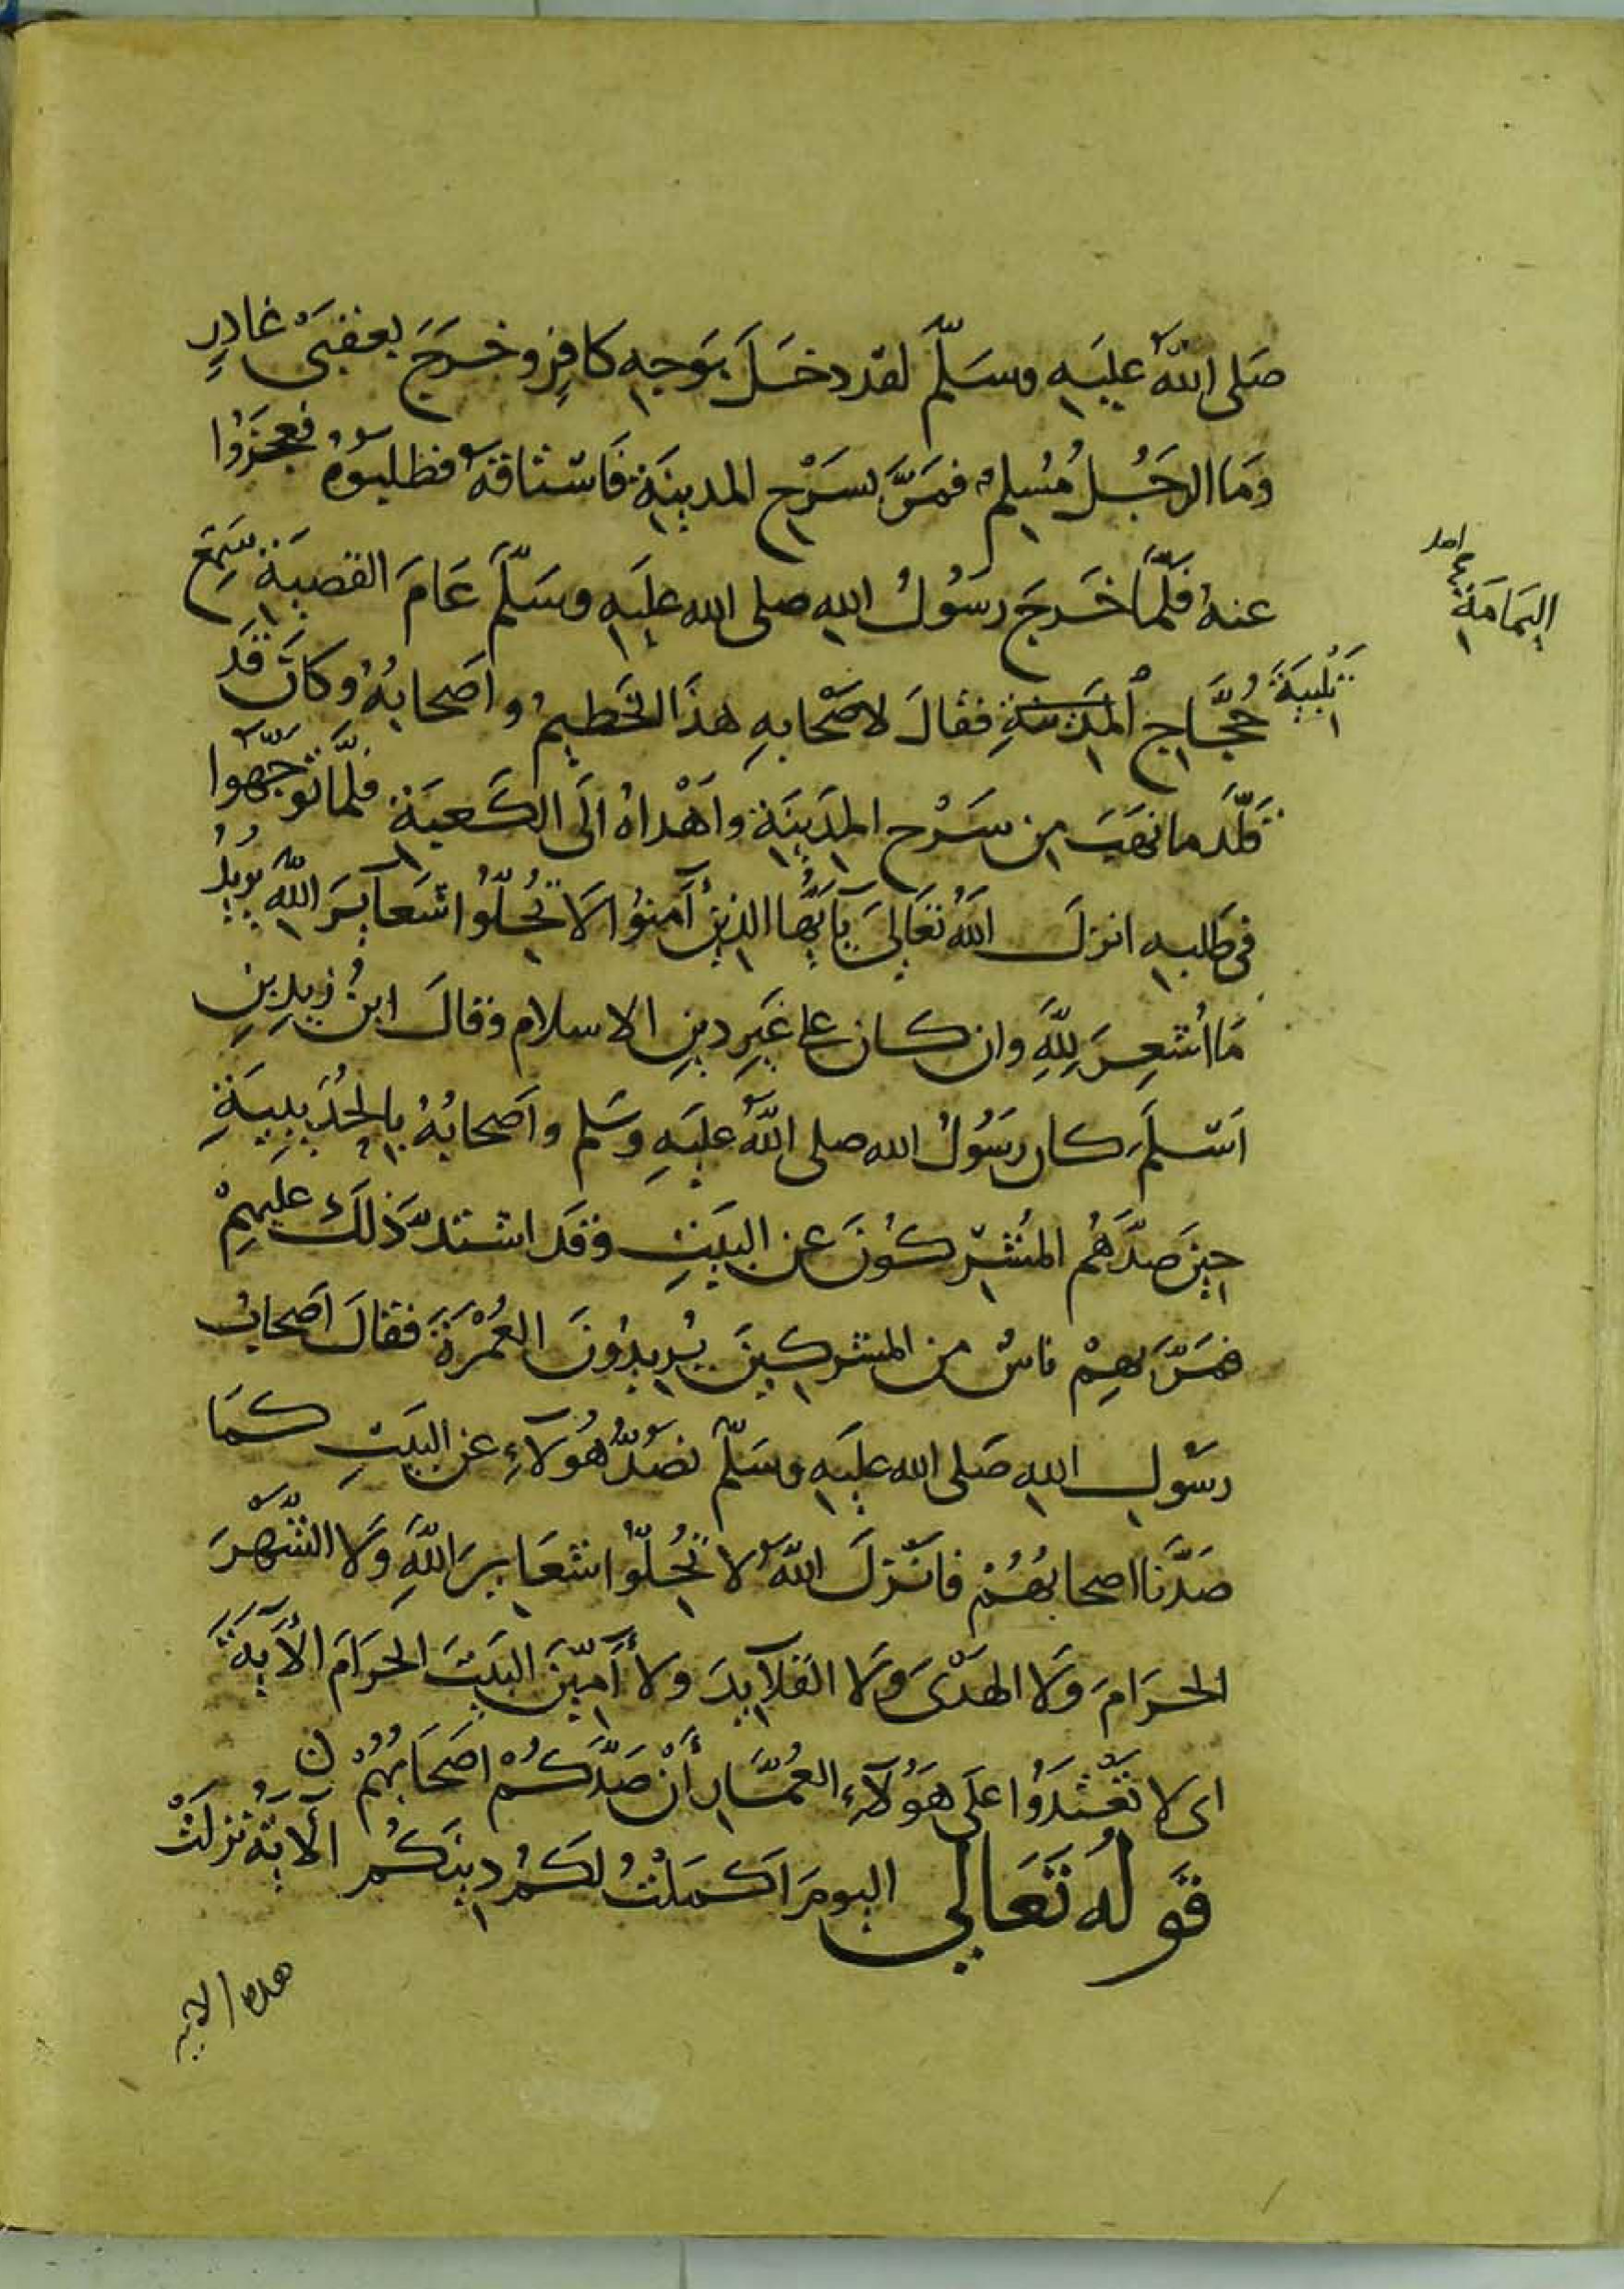 صَلى اللهُ عليَهِ وسَلّمَ لقد دخَلَ بوَجهِ كافِرٍ وخرَجَ بعقبَىْ غادِرٍ
وَمَا الرجُلُ مُسلمٌ فمَرَّ بسَرْحِ المدينَةِ فَاسْتاقهُ فطلبوُهُ فعجَزُوا
عنهُ فلَمَّا خَرجَ رسُولُ اللهِ صلى الله عليَهِ وسَلّمَ عَامَ القضيَةِ سَمِعَ
تَلْبيَةَ حُجَّاجِ المَدينةِ فقالَ لاصْحَابهِ هذَا الحُطيمُ واصَحابُهُ وكانَ قَد
قلّدَ ما نهَبَ مِن سَرْحِ المَدِينَةِ واَهْداهُ الَى الكَعبَةِ فلمَّا توَجَّهوا
فى طلبهِ انزلَ اللهُ تعَالىَ يآ اَيُّهَا الذينَ آمنوُا لاَ تُحُلّوُا شَعَآيرَ اللهِ يريدُ
مَا اُشعِرَ لِلّهِ وان كان على غَيرِ دينِ الاسلام وقالَ ابنُ زيدِ بنِ
اَسْلمَ كان رسَوُلُ الله صلى اللهُ عليَهِ وسَلم واصَحابُهُ بالحُدَيبيَةِ
حينَ صدَّهَمُ المُشْركُونَ عن البيَتِ وقَد اشتدَّ ذلكَ عليهِمْ
فمَرَّ بهِمْ ناسٌ من المشركينَ يُريدوُنَ العُمْرَةَ فقالَ اَصَحابُ
رسَوُلِ اللهِ صَلى الله عليَهِ وسَلّمَ نصُدُّ هُولآءِ عن البيَتِ كمَا
صَدَّنَا اصحابُهُمْ فانْزلَ اللهُ لا تُحُلّوْا شعَايرَ اللهِ وَلا الشّهْرَ
الحرَامَ وَلا الهَدْىَ وَلا القلآيدَ ولا آمّينَ البَيتَ الحرَامَ الآيَةَ
اى لا تعْتدَوُا علَى هَوُلآءِ العُمَّارِ أنْ صَدَّكُمْ اصَحَابُهُمْ ن
قوله تعَالى اليومَ اكمَلْتُ لكمُ دينَكُم الآيَةُ نزلَتْ
اليمَامَةِ
هذه الاية